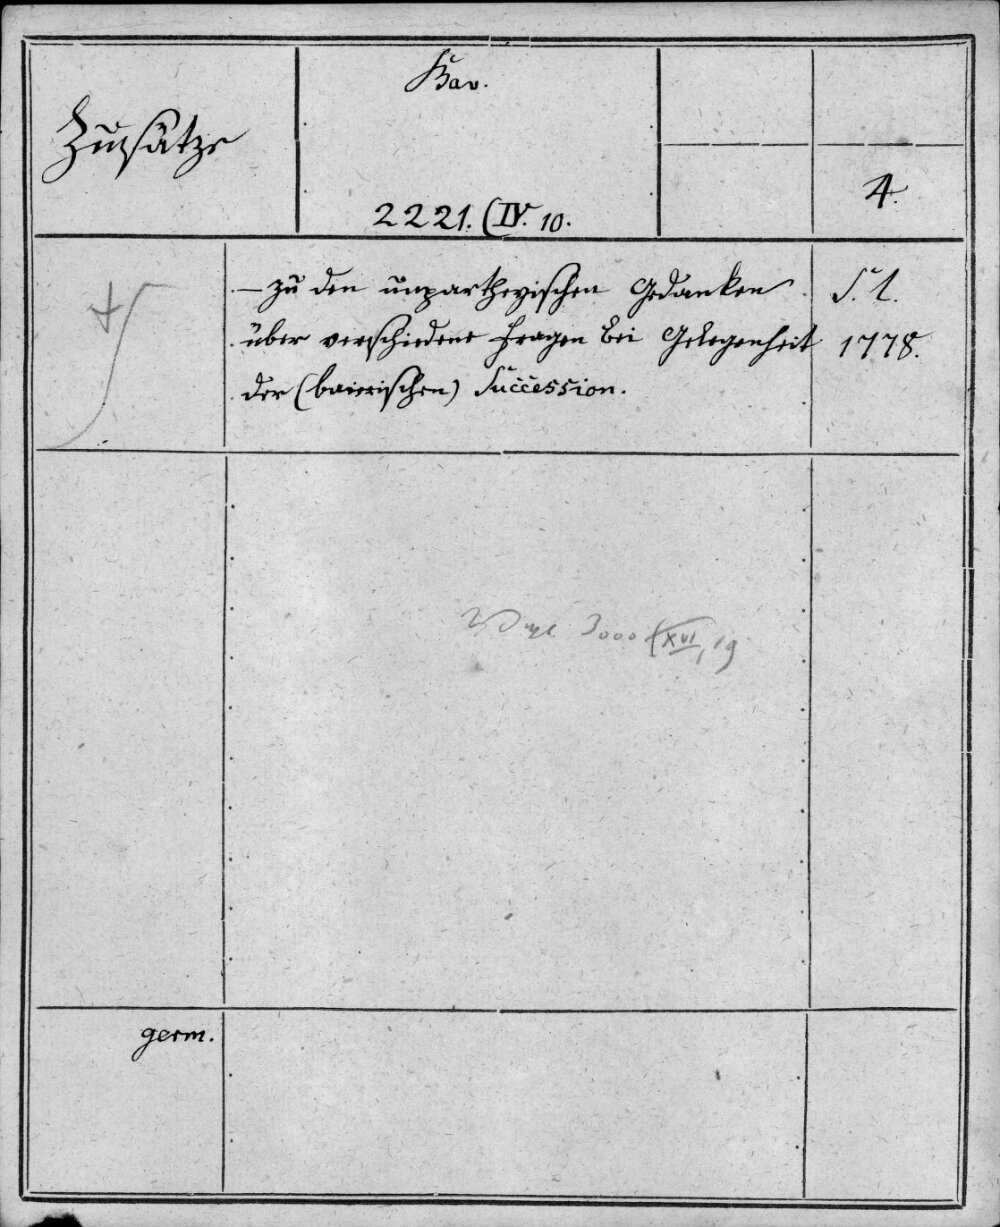 Zusätze
Bav.
2221. (IV. 10.
4.
– zu den unpartheyischen Gedanken
über verschiedene Fragen bei Gelegenheit
der (baierischen) Succession.
S. l.
1778.
3000 (XVI, 19
germ.